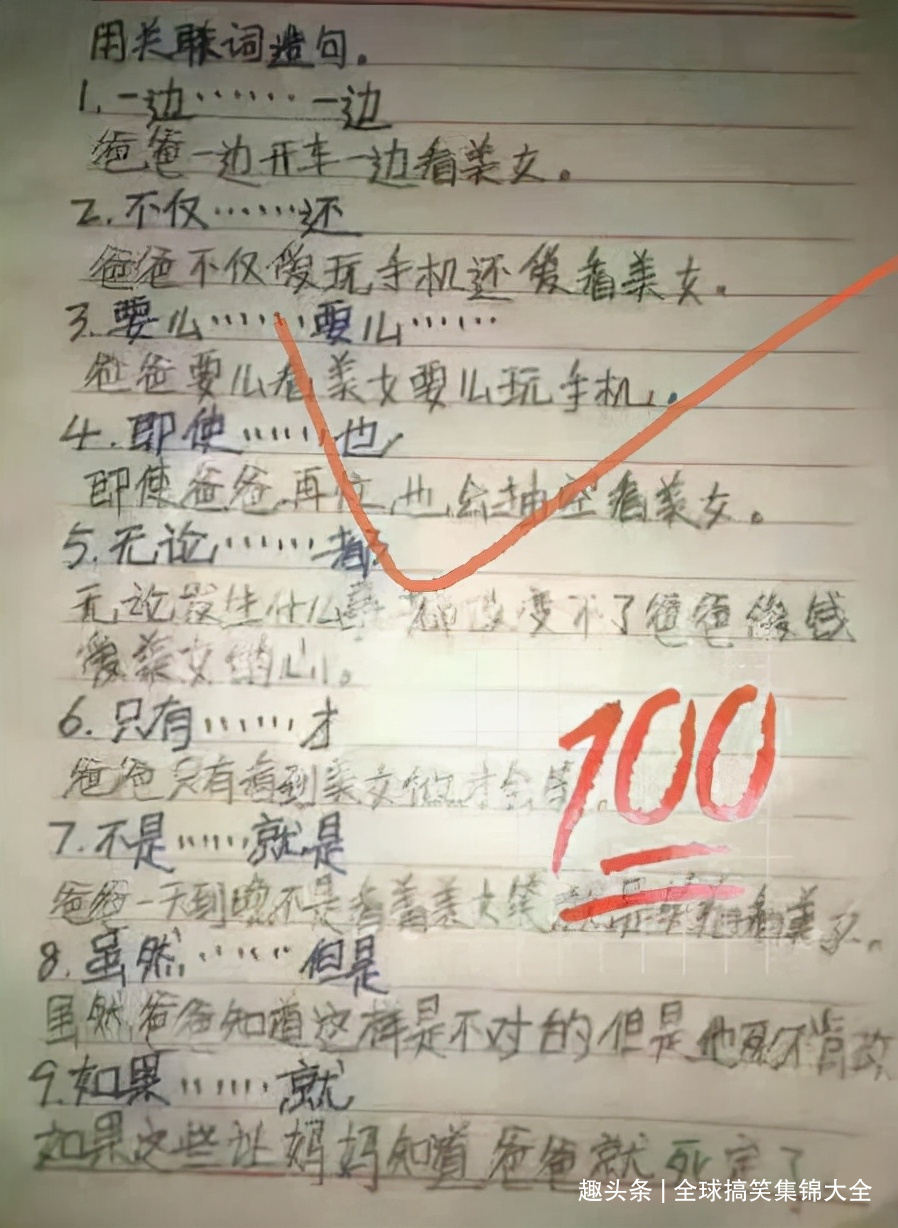 用关联词造句。
1.一边……一边
爸爸一边开车一边看美女。
2.不仅……还
爸爸不仅爱玩手机还爱看美女。
3.要么……要么……
爸爸要么看美女要么玩手机。
4.即使……也
即使爸爸再忙也会抽空看美女。
5.无论……都
无论发生什么事都改变不了爸爸爱钱
爱美女的心。
6.只有……才
爸爸只有看到美女他才会笑。
100
7.不是……就是
爸爸一天到晚不是看着美女笑就是看美女。
8.虽然……但是
虽然爸爸知道这样是不对的但是他死不肯改
9.如果……就
如果这些让妈妈知道爸爸就死定了
趣头条 | 全球搞笑集锦大全